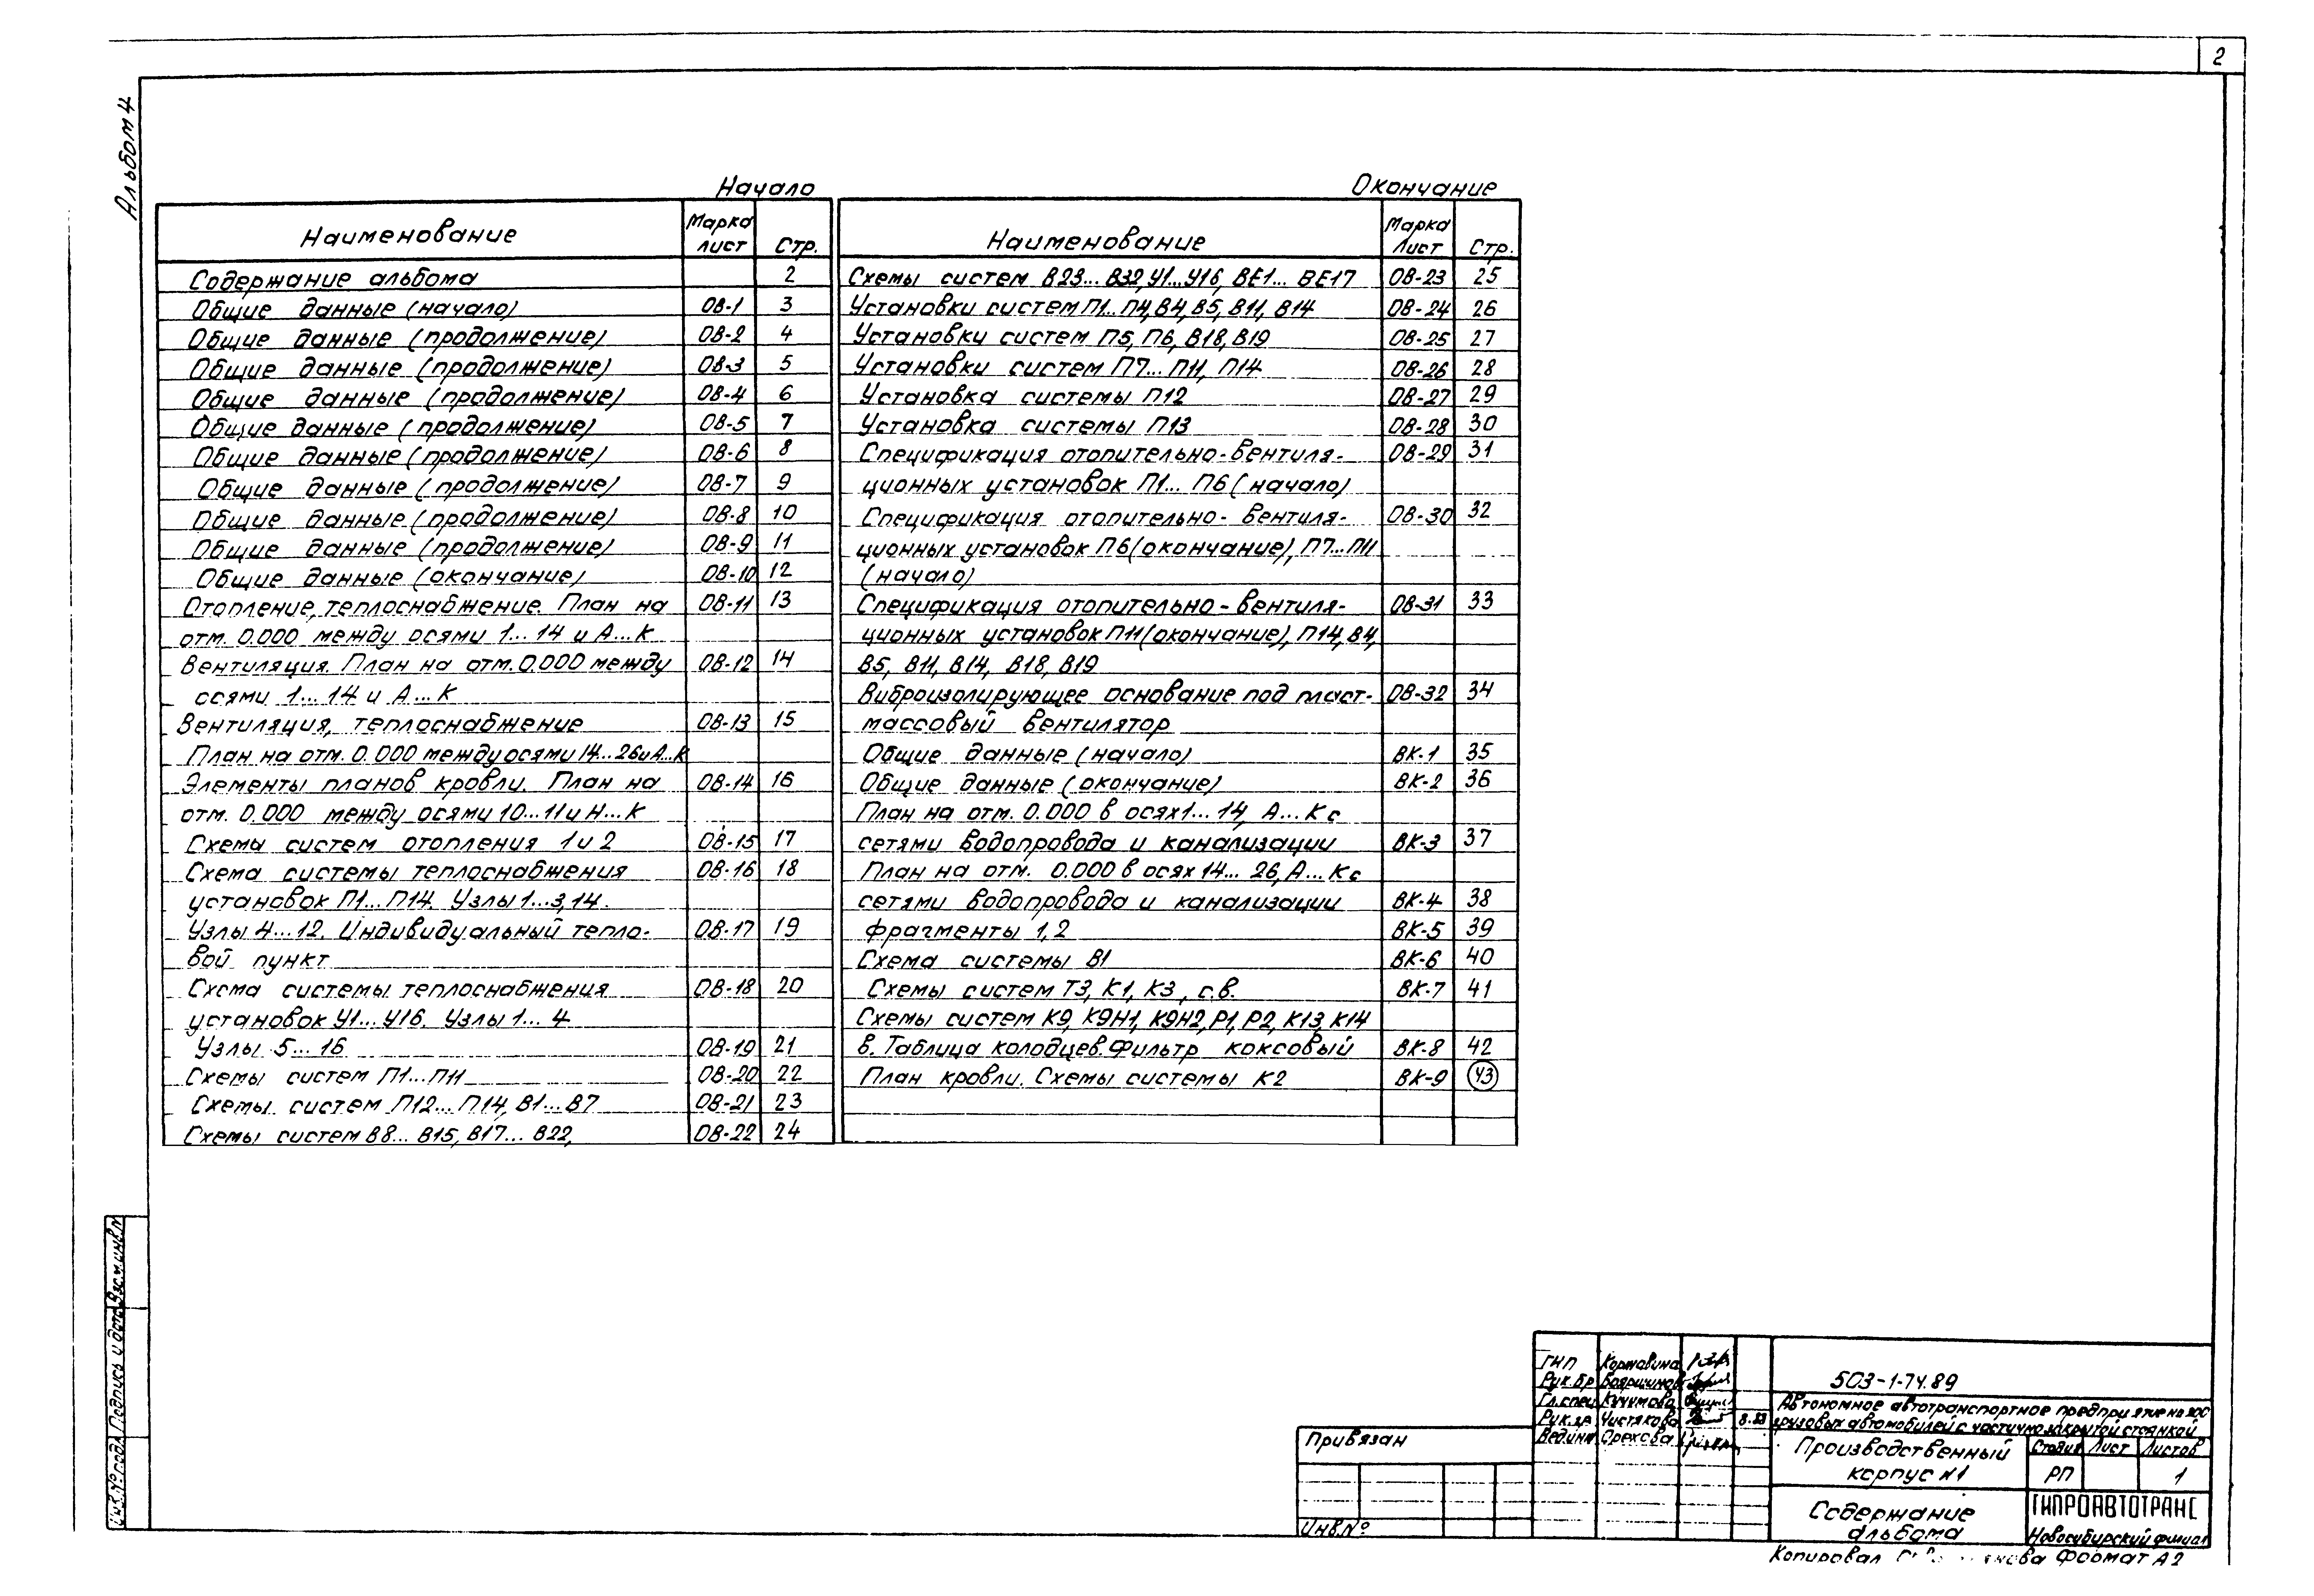 2
Альбом 4
Начало
Наименование Марка лист Стр.
Содержание альбома 2
Общие данные (начало) ОВ-1 3
Общие данные (продолжение) ОВ-2 4
Общие данные (продолжение) ОВ-3 5
Общие данные (продолжение) ОВ-4 6
Общие данные (продолжение) ОВ-5 7
Общие данные (продолжение) ОВ-6 8
Общие данные (продолжение) ОВ-7 9
Общие данные (продолжение) ОВ-8 10
Общие данные (продолжение) ОВ-9 11
Общие данные (окончание) ОВ-10 12
Отопление, теплоснабжение. План на ОВ-11 13
отм. 0.000 между осями 1...14 и А...К
Вентиляция. План на отм. 0.000 между ОВ-12 14
осями 1...14 и А...К
Вентиляция, теплоснабжение ОВ-13 15
План на отм. 0.000 между осями 14...26 и А...К
Элементы планов кровли. План на ОВ-14 16
отм. 0.000 между осями 10...11 и Н...К
Схемы систем отопления 1 и 2 ОВ-15 17
Схема системы теплоснабжения ОВ-16 18
установок П1...П14. Узлы 1...3,14.
Узлы 4...12. Индивидуальный тепло- ОВ-17 19
вой пункт
Схема системы теплоснабжения ОВ-18 20
установок У1...У16. Узлы 1...4
Узлы 5...16 ОВ-19 21
Схемы систем П1...П11 ОВ-20 22
Схемы систем П12...П14, В1...В7 ОВ-21 23
Схемы систем В8...В15, В17...В22, ОВ-22 24
Окончание
Наименование Марка Лист Стр.
Схемы систем В23...В32, У1...У16, ВЕ1...ВЕ17 ОВ-23 25
Установки систем П1...П4, В4, В5, В11, В14 ОВ-24 26
Установки систем П5, П6, В18, В19 ОВ-25 27
Установки систем П7...П11, П14 ОВ-26 28
Установка системы П12 ОВ-27 29
Установка системы П13 ОВ-28 30
Спецификация отопительно-вентиля- ОВ-29 31
ционных установок П1...П6 (начало)
Спецификация отопительно-вентиля- ОВ-30 32
ционных установок П6 (окончание), П7...П11
(начало)
Спецификация отопительно-вентиля- ОВ-31 33
ционных установок П11 (окончание), П14, В4,
В5, В11, В14, В18, В19
Виброизолирующее основание под пласт- ОВ-32 34
массовый вентилятор
Общие данные (начало) ВК-1 35
Общие данные (окончание) ВК-2 36
План на отм. 0.000 в осях 1...14, А...К с
сетями водопровода и канализации ВК-3 37
План на отм. 0.000 в осях 14...26, А...К с
сетями водопровода и канализации ВК-4 38
Фрагменты 1,2 ВК-5 39
Схема системы В1 ВК-6 40
Схемы систем Т3, К1, К3, с.в. ВК-7 41
Схемы систем К9, К9Н1, К9Н2, Р1, Р2, К13, К14
в. Таблица колодцев. Фильтр коксовый ВК-8 42
План кровли. Схемы системы К2 ВК-9 43
Инв.№ подл. Подпись и дата Взам.инв.№
Привязан
Инв.№
ГИП Коржавина
Рук.бр Бояршинов
Гл.спец Кучумова
Рук.гр Чистякова
Вед.инж Орехова
503-1-74.89
Автономное автотранспортное предприятие на 200
грузовых автомобилей с частично закрытой стоянкой
Производственный корпус №1
Стадия Лист Листов
РП 1
Содержание альбома
ГИПРОАВТОТРАНС
Новосибирский филиал
Копировал Формат А2